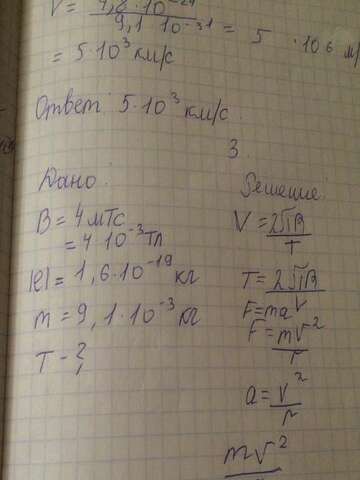 V = 4,8 · 10⁻²⁴ / 9,1 10⁻³¹ = 5 · 10⁶ м/
= 5·10³ км/с
Ответ: 5·10³ км/с
3.
Дано:
B = 4 мТс
= 4·10⁻³ Тл
|e| = 1,6·10⁻¹⁹ кг
m = 9,1·10⁻³ кг
T - ?
Решение:
V = 2πR / T
T = 2πR / V
F = ma
F = mv² / r
a = v² / r
mv²